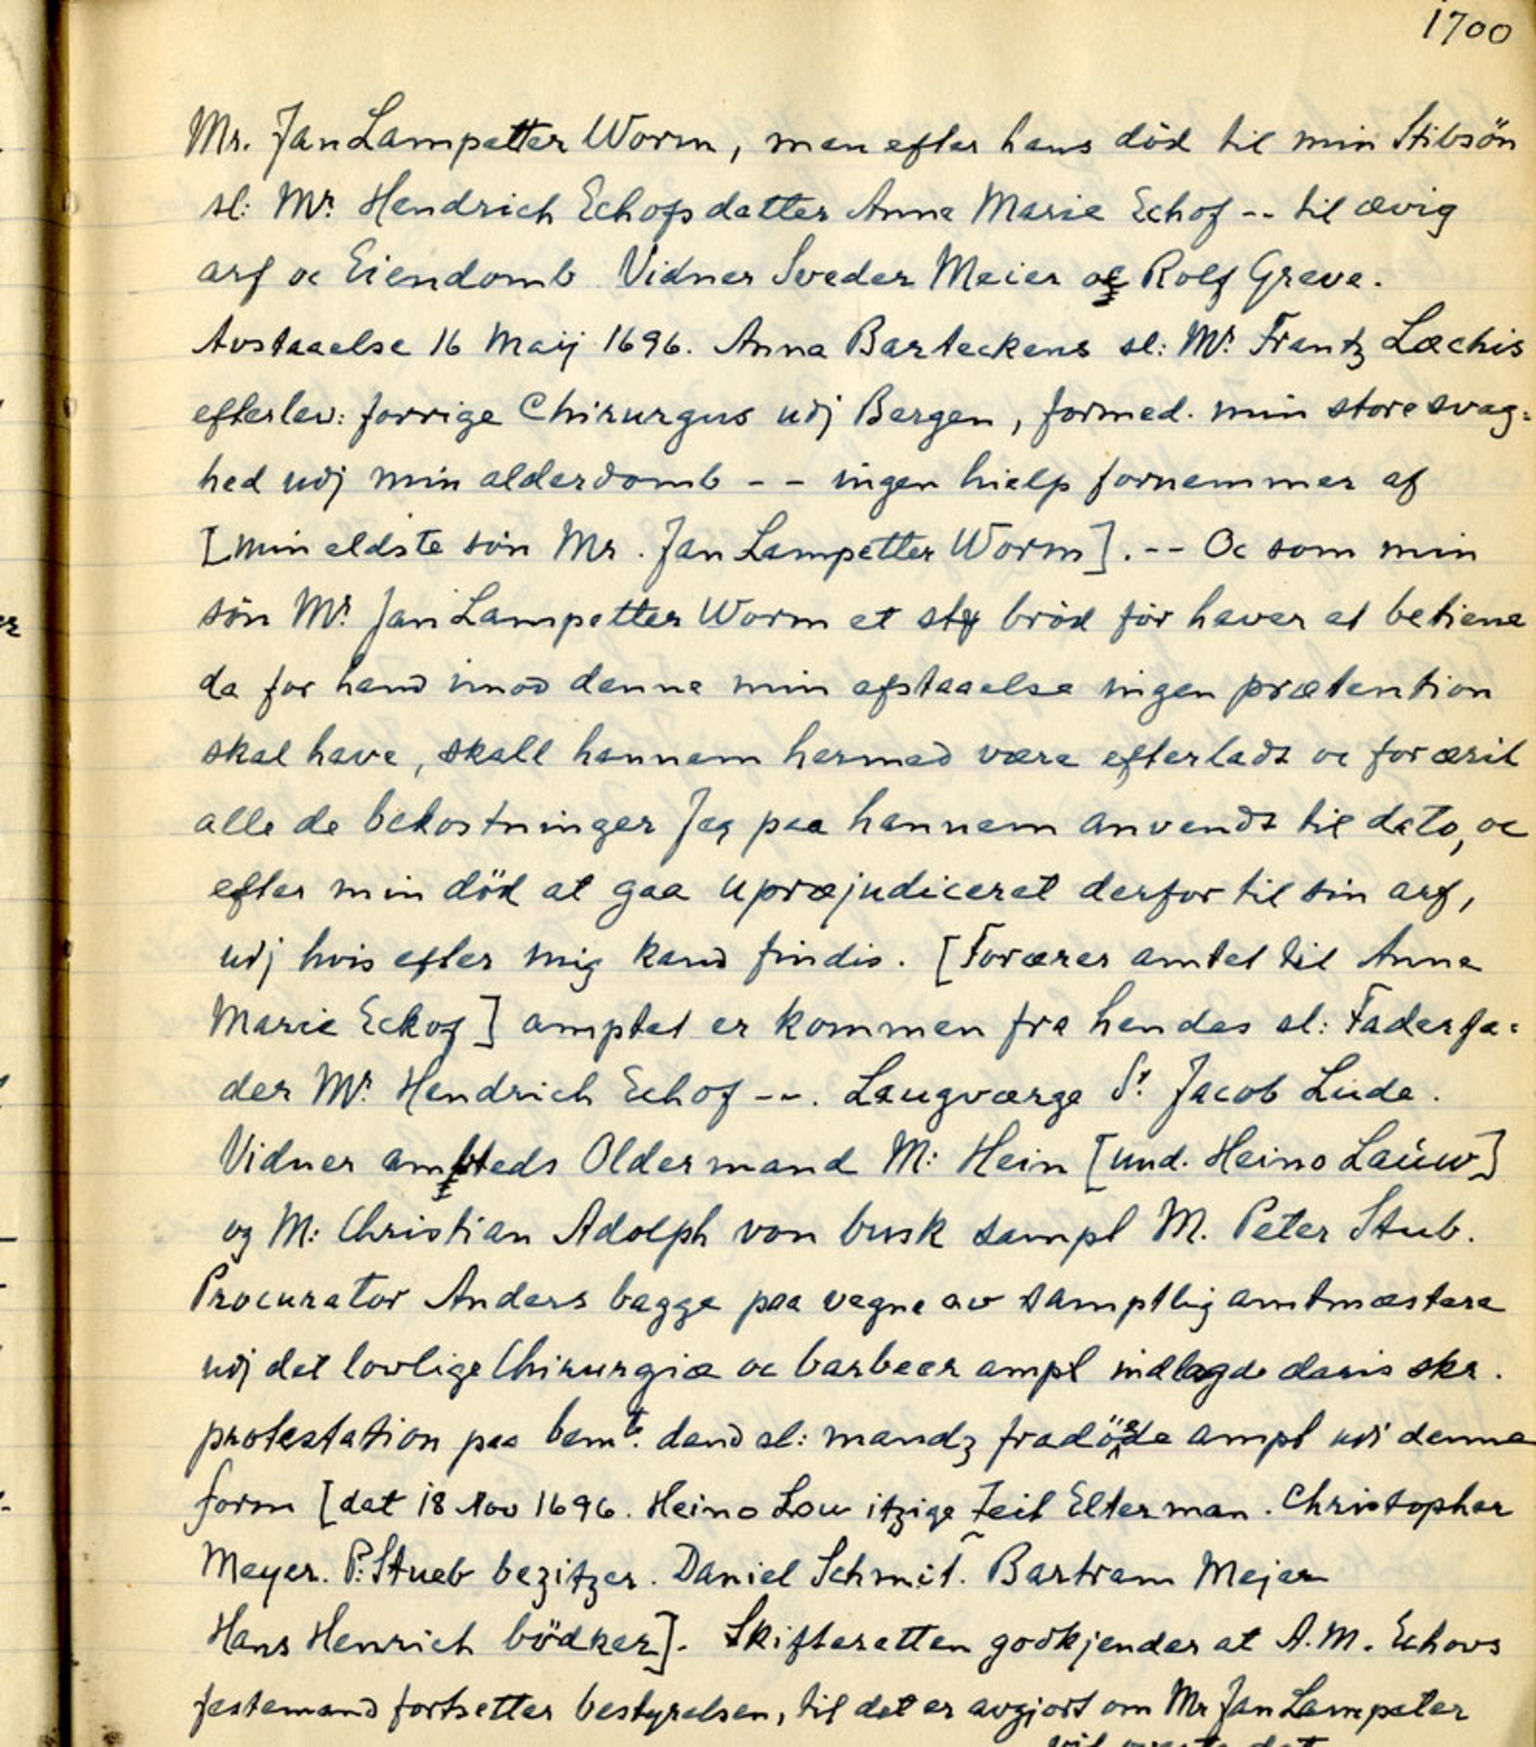 1700
Mr. Jan Lampetter Worm, men efter hans död til min Stibsön
sl: Mr. Hendrich Echofs datter Anne Marie Echof -- til ævig
arf oc Eiendomb Vidner Sveder Meier oc Rolf Greve.
Avstaaelse 16 Maij 1696. Anna Barteckens sl: Mr. Frantz Lœchis
efterlev: forrige Chirurgus udj Bergen, formed. min store svag=
hed udj min alderdomb -- ingen hielp fornemmer af
[min eldste sön Mr. Jan Lampetter Worm]. -- Oc som min
sön Mr. Jan Lampetter Worm et sty bröd för haver at betiene
da for hand imod denne min afstaaelse ingen prætention
skal have, skall hannem hermed være efterladt oc foræril
alle de bekostninger Jeg paa hannem anvendt til dato, oc
efter min död at gaa upræjudiceret derfor til sin arf,
udj hvis efter mig kand findis. [Forærer amtet til Anne
Marie Eckof] amptet er kommen fra hendes sl: Faderfa=
der Mr. Hendrich Echof --. Laugværge Sr. Jacob Lude.
Vidner ambteds Oldermand M: Hein [und. Heino Laúw]
og M: Christian Adolph von busk sampt M. Peter Stub.
Procurator Anders bagge paa vegne av samptlig amtmæstere
udj det lovlige Chirurgiæ oc barbeer ampt indlagde deris skr.
protestation paa bemte. dend sl: mandz fradöede ampt udi denne
form [dat 18 Nov 1696. Heino Lou itzige Zeit Elterman. Christopher
Meyer. P: Stueb bezitzer. Daniel Schmit. Bartram Mejer
Hans Henrich bödker]. Skifteretten godkjender at A.M. Echovs
festemand fortsetter bestyrelsen, til det er avgjort om Mr Jan Lampeter